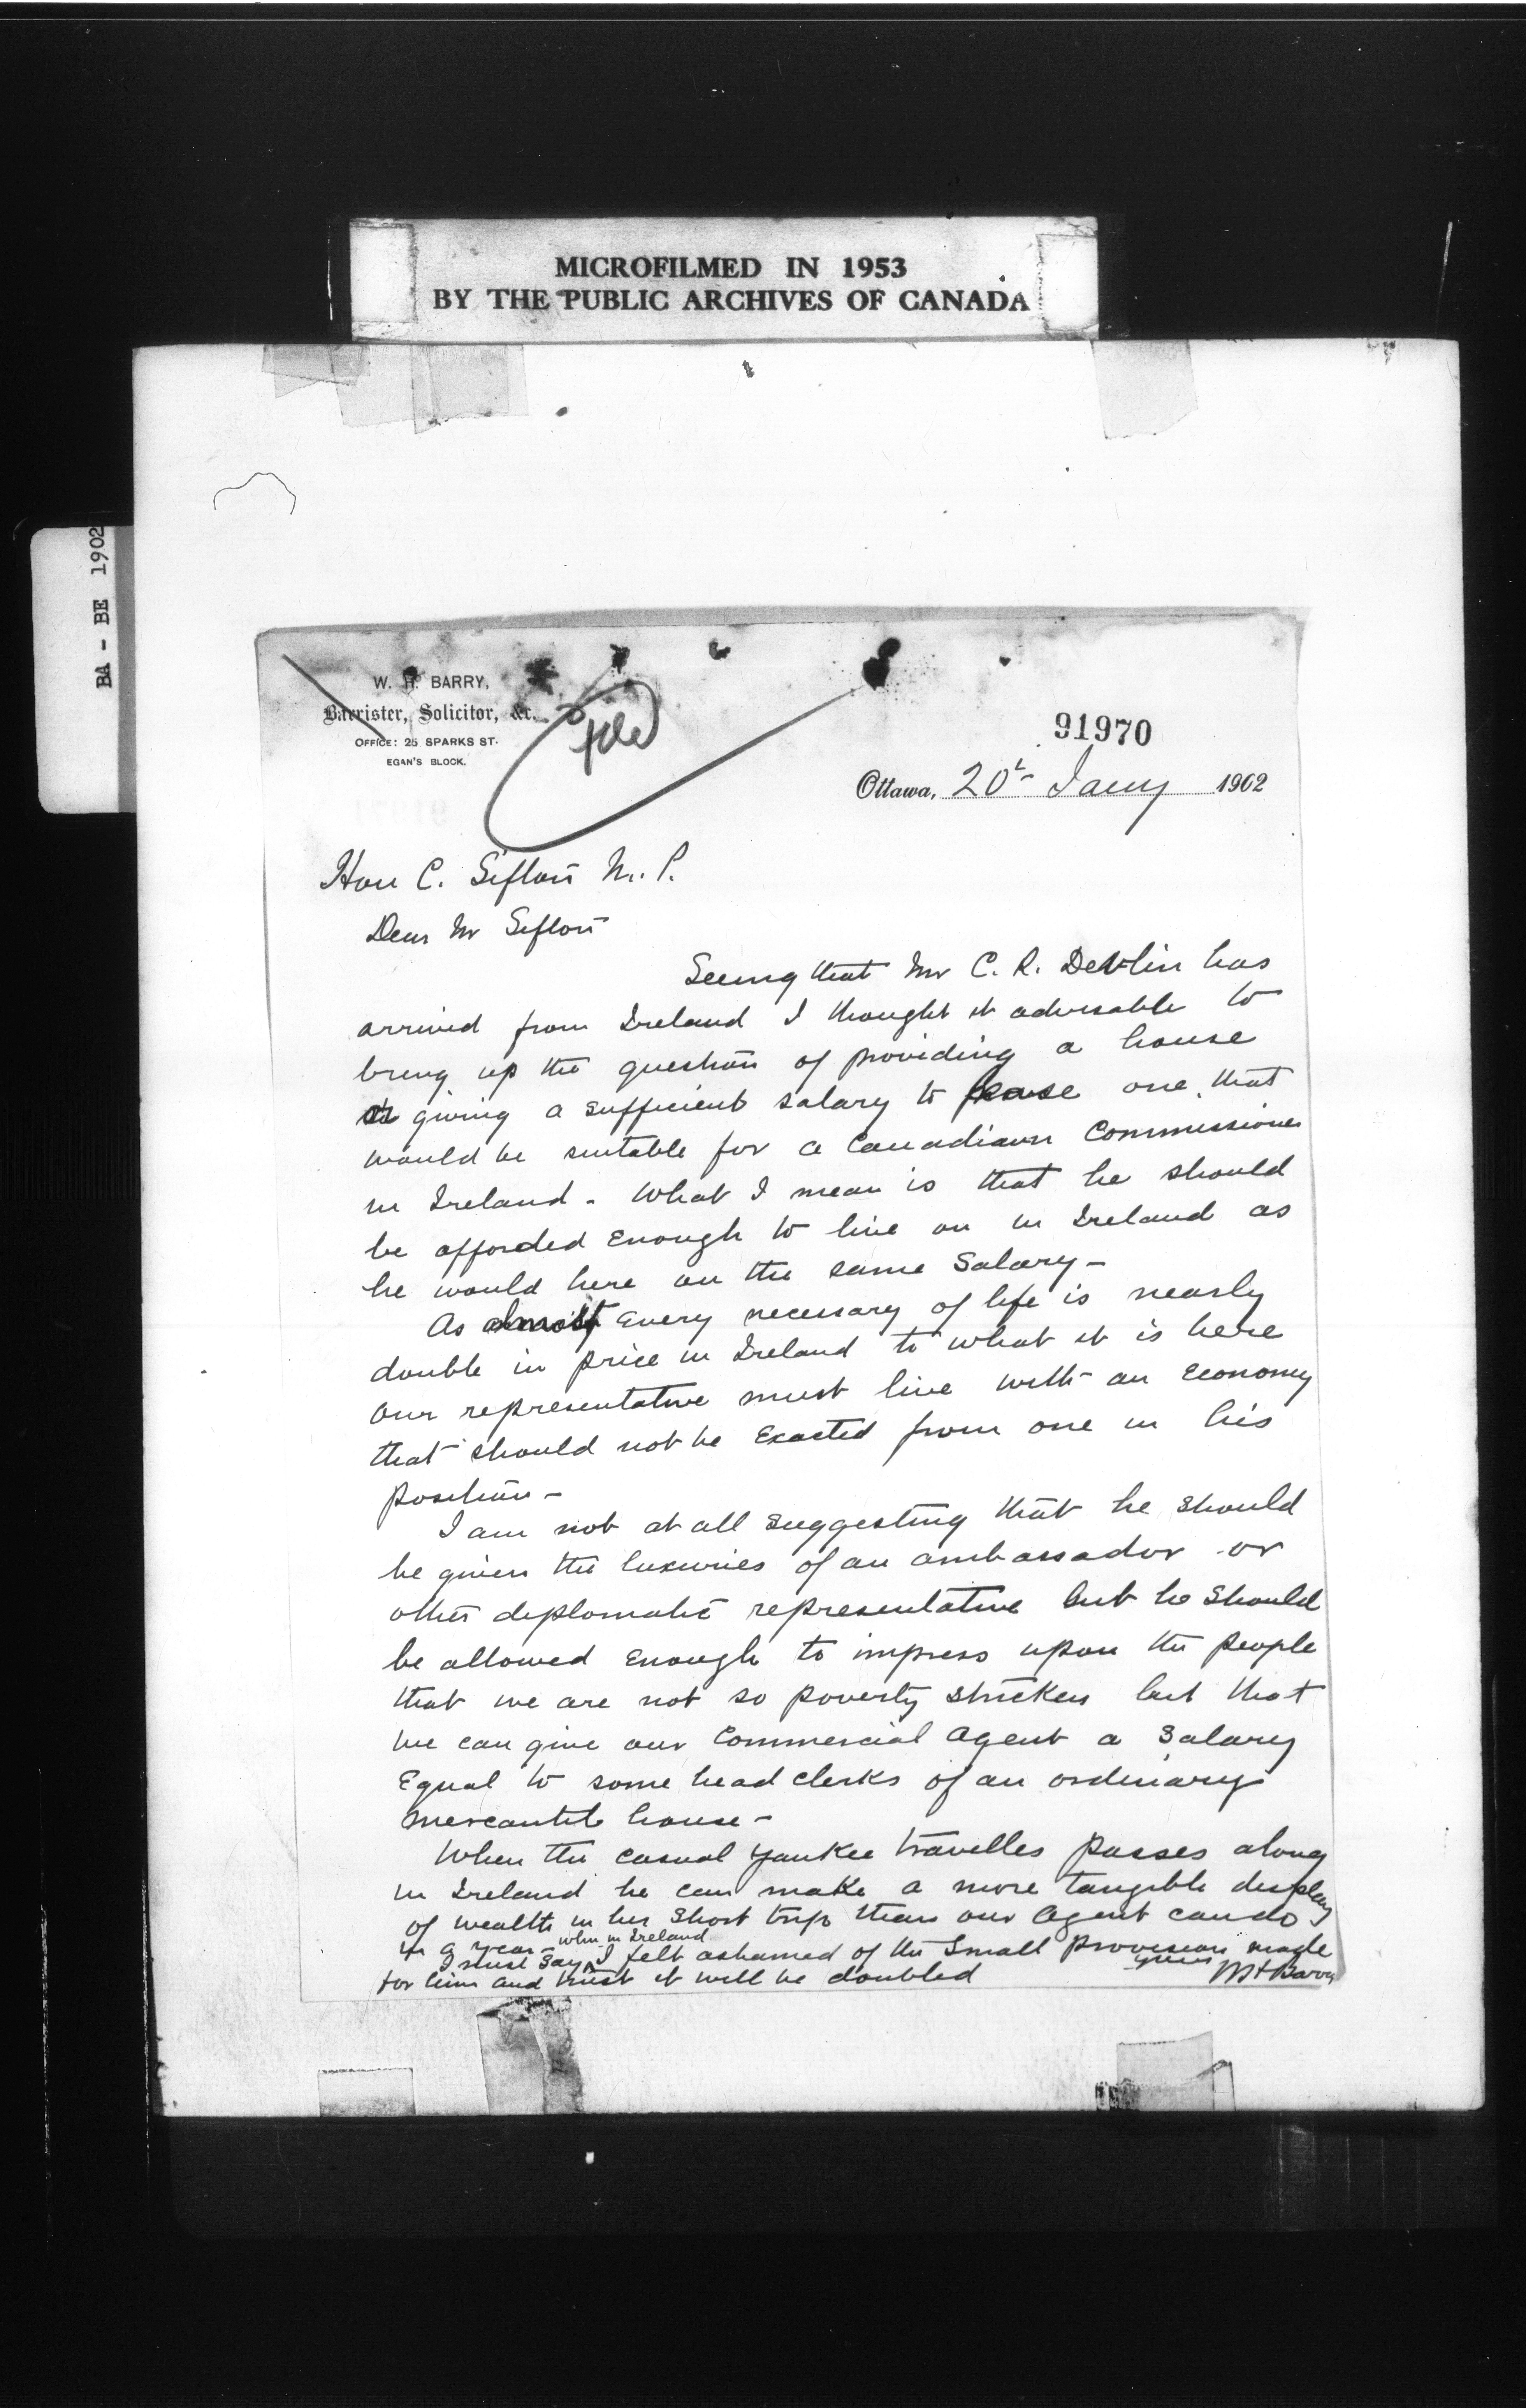 MICROFILMED IN 1953
BY THE PUBLIC ARCHIVES OF CANADA
BA - BE 1902
W. H. BARRY,
Barrister, Solicitor, &c.
OFFICE: 25 SPARKS ST.
EGAN'S BLOCK.
file
91970
Ottawa, 20th Jany 1902
Hon C. Sifton M. P.
Dear Mr Sifton
Seeing that Mr C. R. Devlin has
arrived from Ireland I thought it advisable to
bring up the question of providing a house
or giving a sufficient salary to lease one that
would be suitable for a Canadian Commissioner
in Ireland - What I mean is that he should
be afforded enough to live on in Ireland as
he would here on the same salary -
As almost every necessary of life is nearly
double in price in Ireland to what it is here
our representative must live with an economy
that should not be exacted from one in his
position -
I am not at all suggesting that he should
be given the luxuries of an ambassador or
other diplomatic representative but he should
be allowed enough to impress upon the people
that we are not so poverty stricken but that
we can give our Commercial Agent a salary
equal to some head clerks of an ordinary
mercantile house -
When the casual Yankee traveller passes along
in Ireland he can make a more tangible display
of wealth in his short trip than our Agent can do
in a year -
I must say when in Ireland I felt ashamed of the small provision made
for him and trust it will be doubled
yours
WH Barry